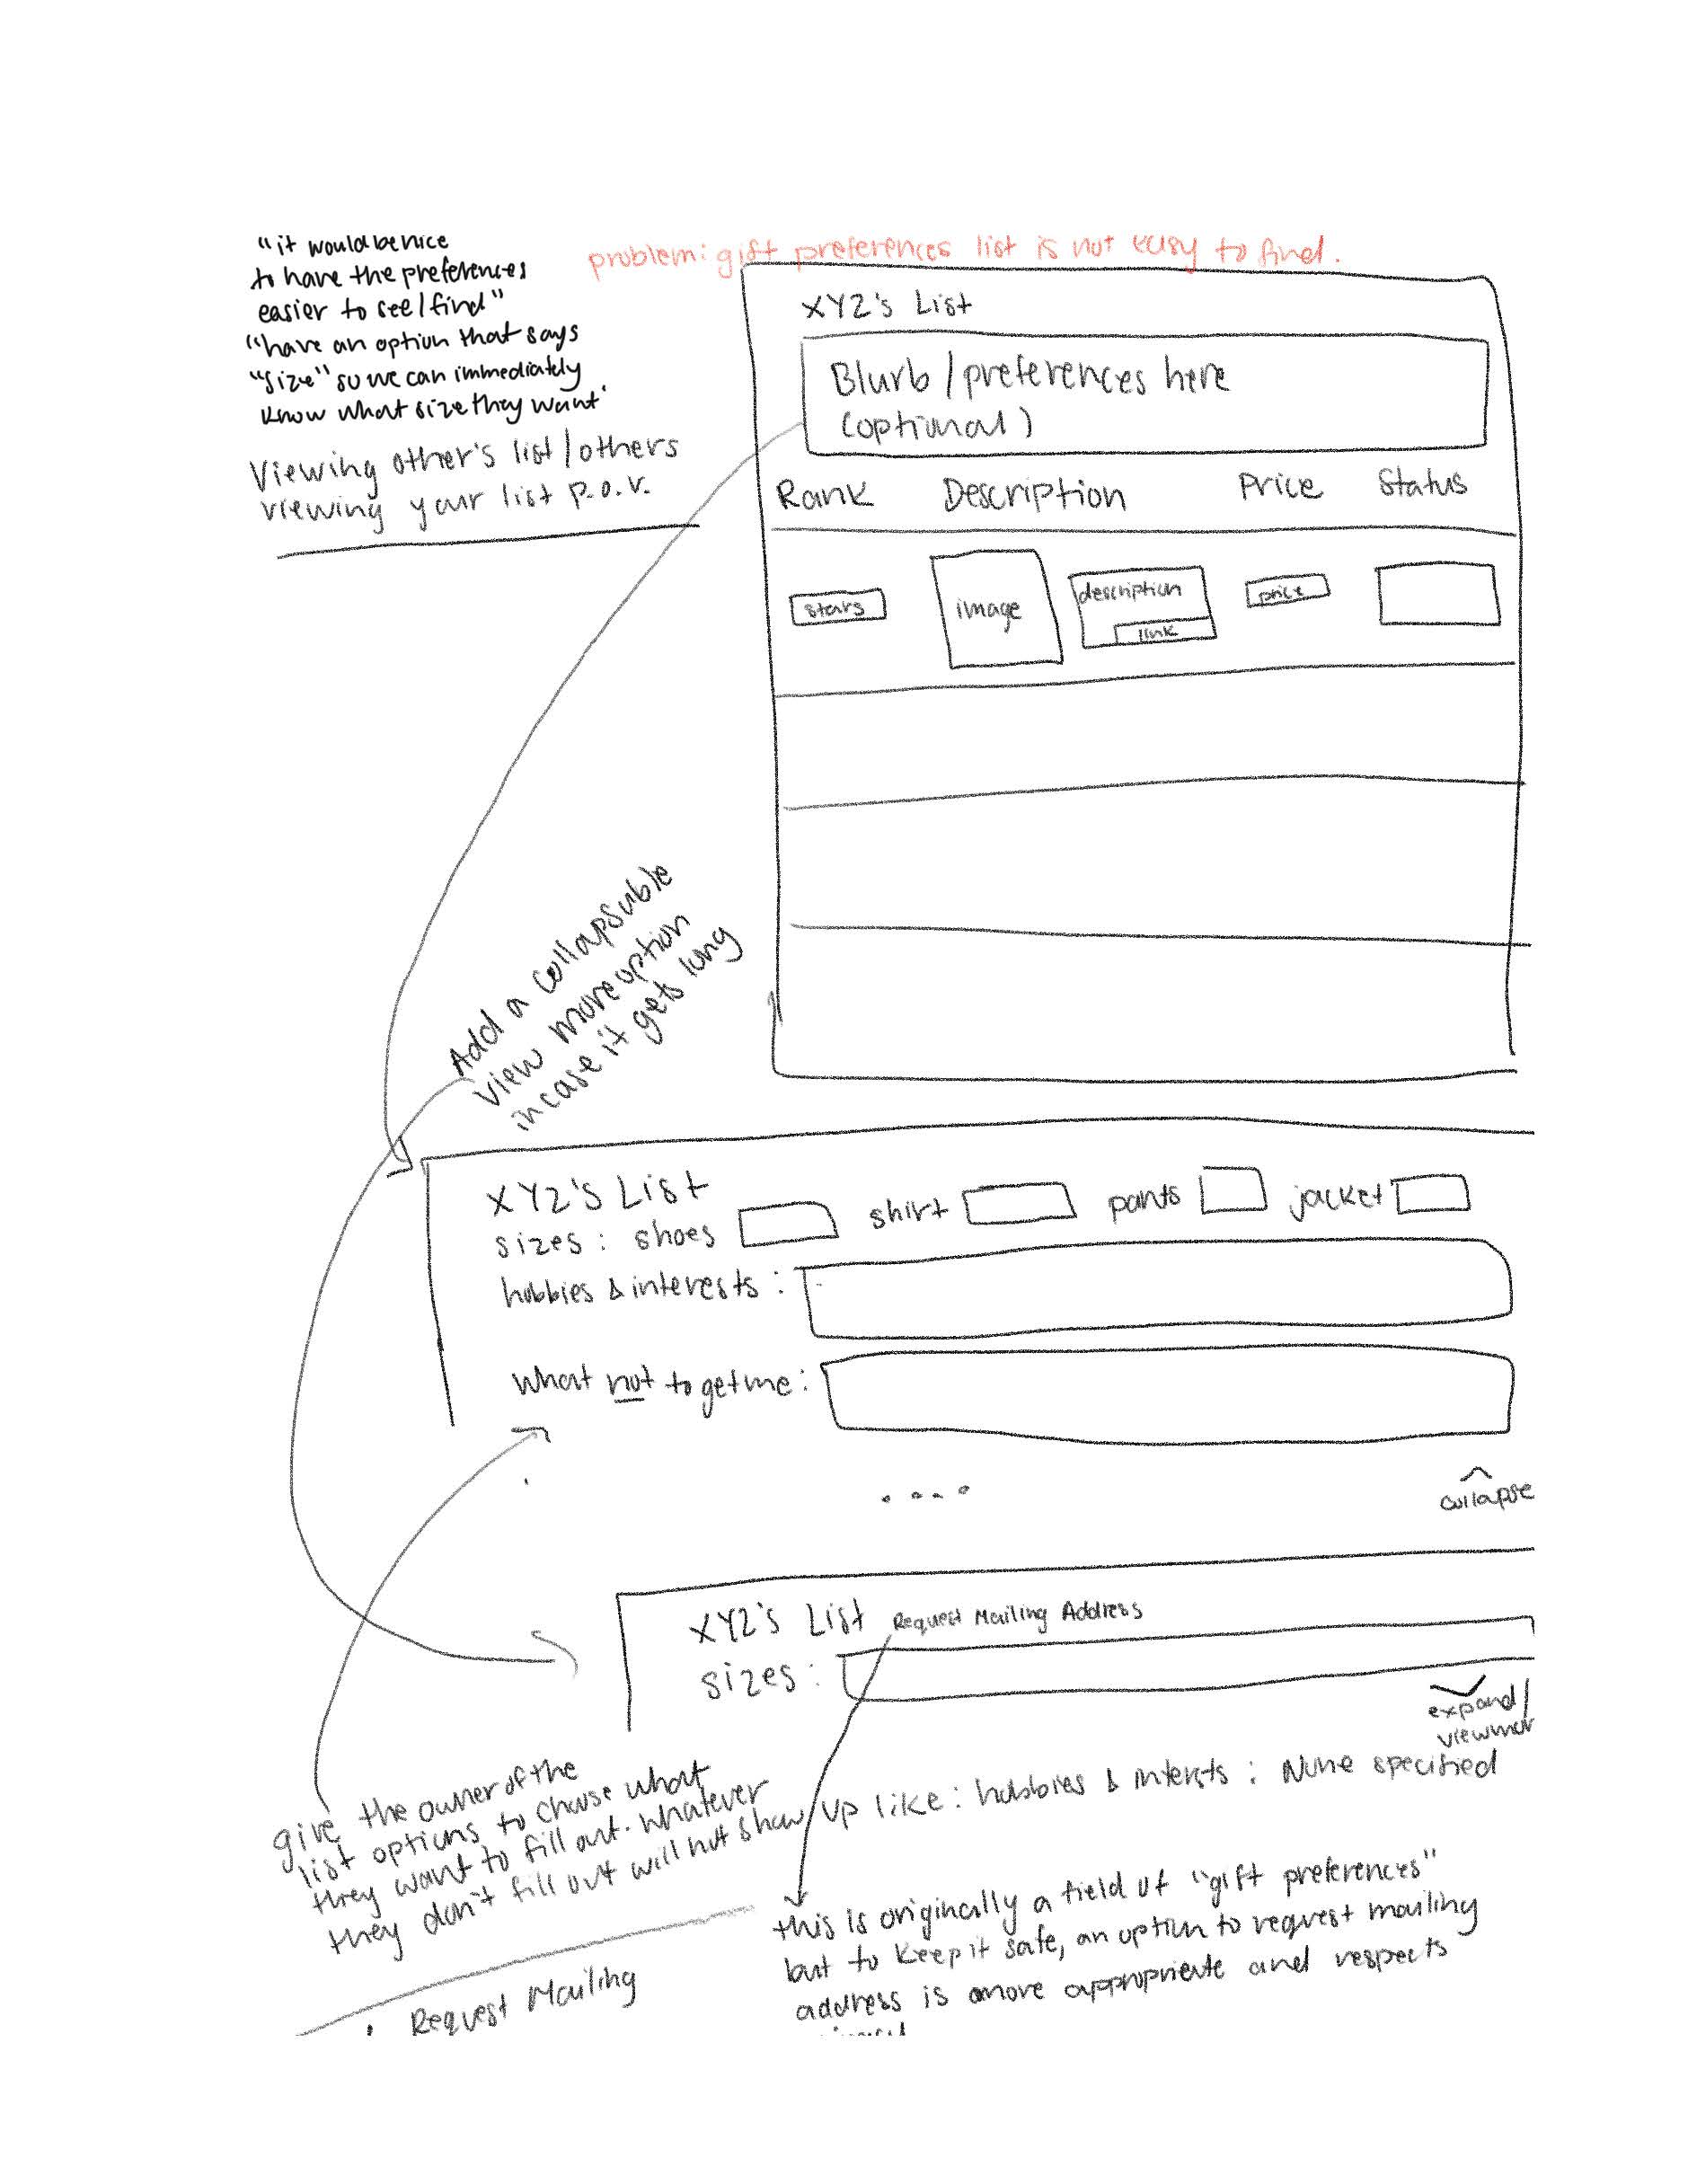 "it would be nice
to have the preferences
easier to see/find"
"have an option that says
"size" so we can immediately
know what size they want"
Viewing other's list/others
viewing your list p.o.v.
problem: gift preferences list is not easy to find.
XYZ's List
Blurb/preferences here
(optional)
Rank Description Price Status
stars image description price
link
Add a collapsuble
view more option
incase it gets long
XYZ's List
sizes: shoes shirt pants jacket
hobbies & interests:
what not to get me:
....
collapse
XYZ's List Request Mailing Address
sizes:
expand/
viewmor
give the owner of the
list options to choose what
they want to fill out. whatever
they don't fill out will not show up like: hobbies & interests: None specified
this is originally a field of "gift preferences"
but to keep it safe, an option to request mailing
address is more appropriate and respects
Request Mailing